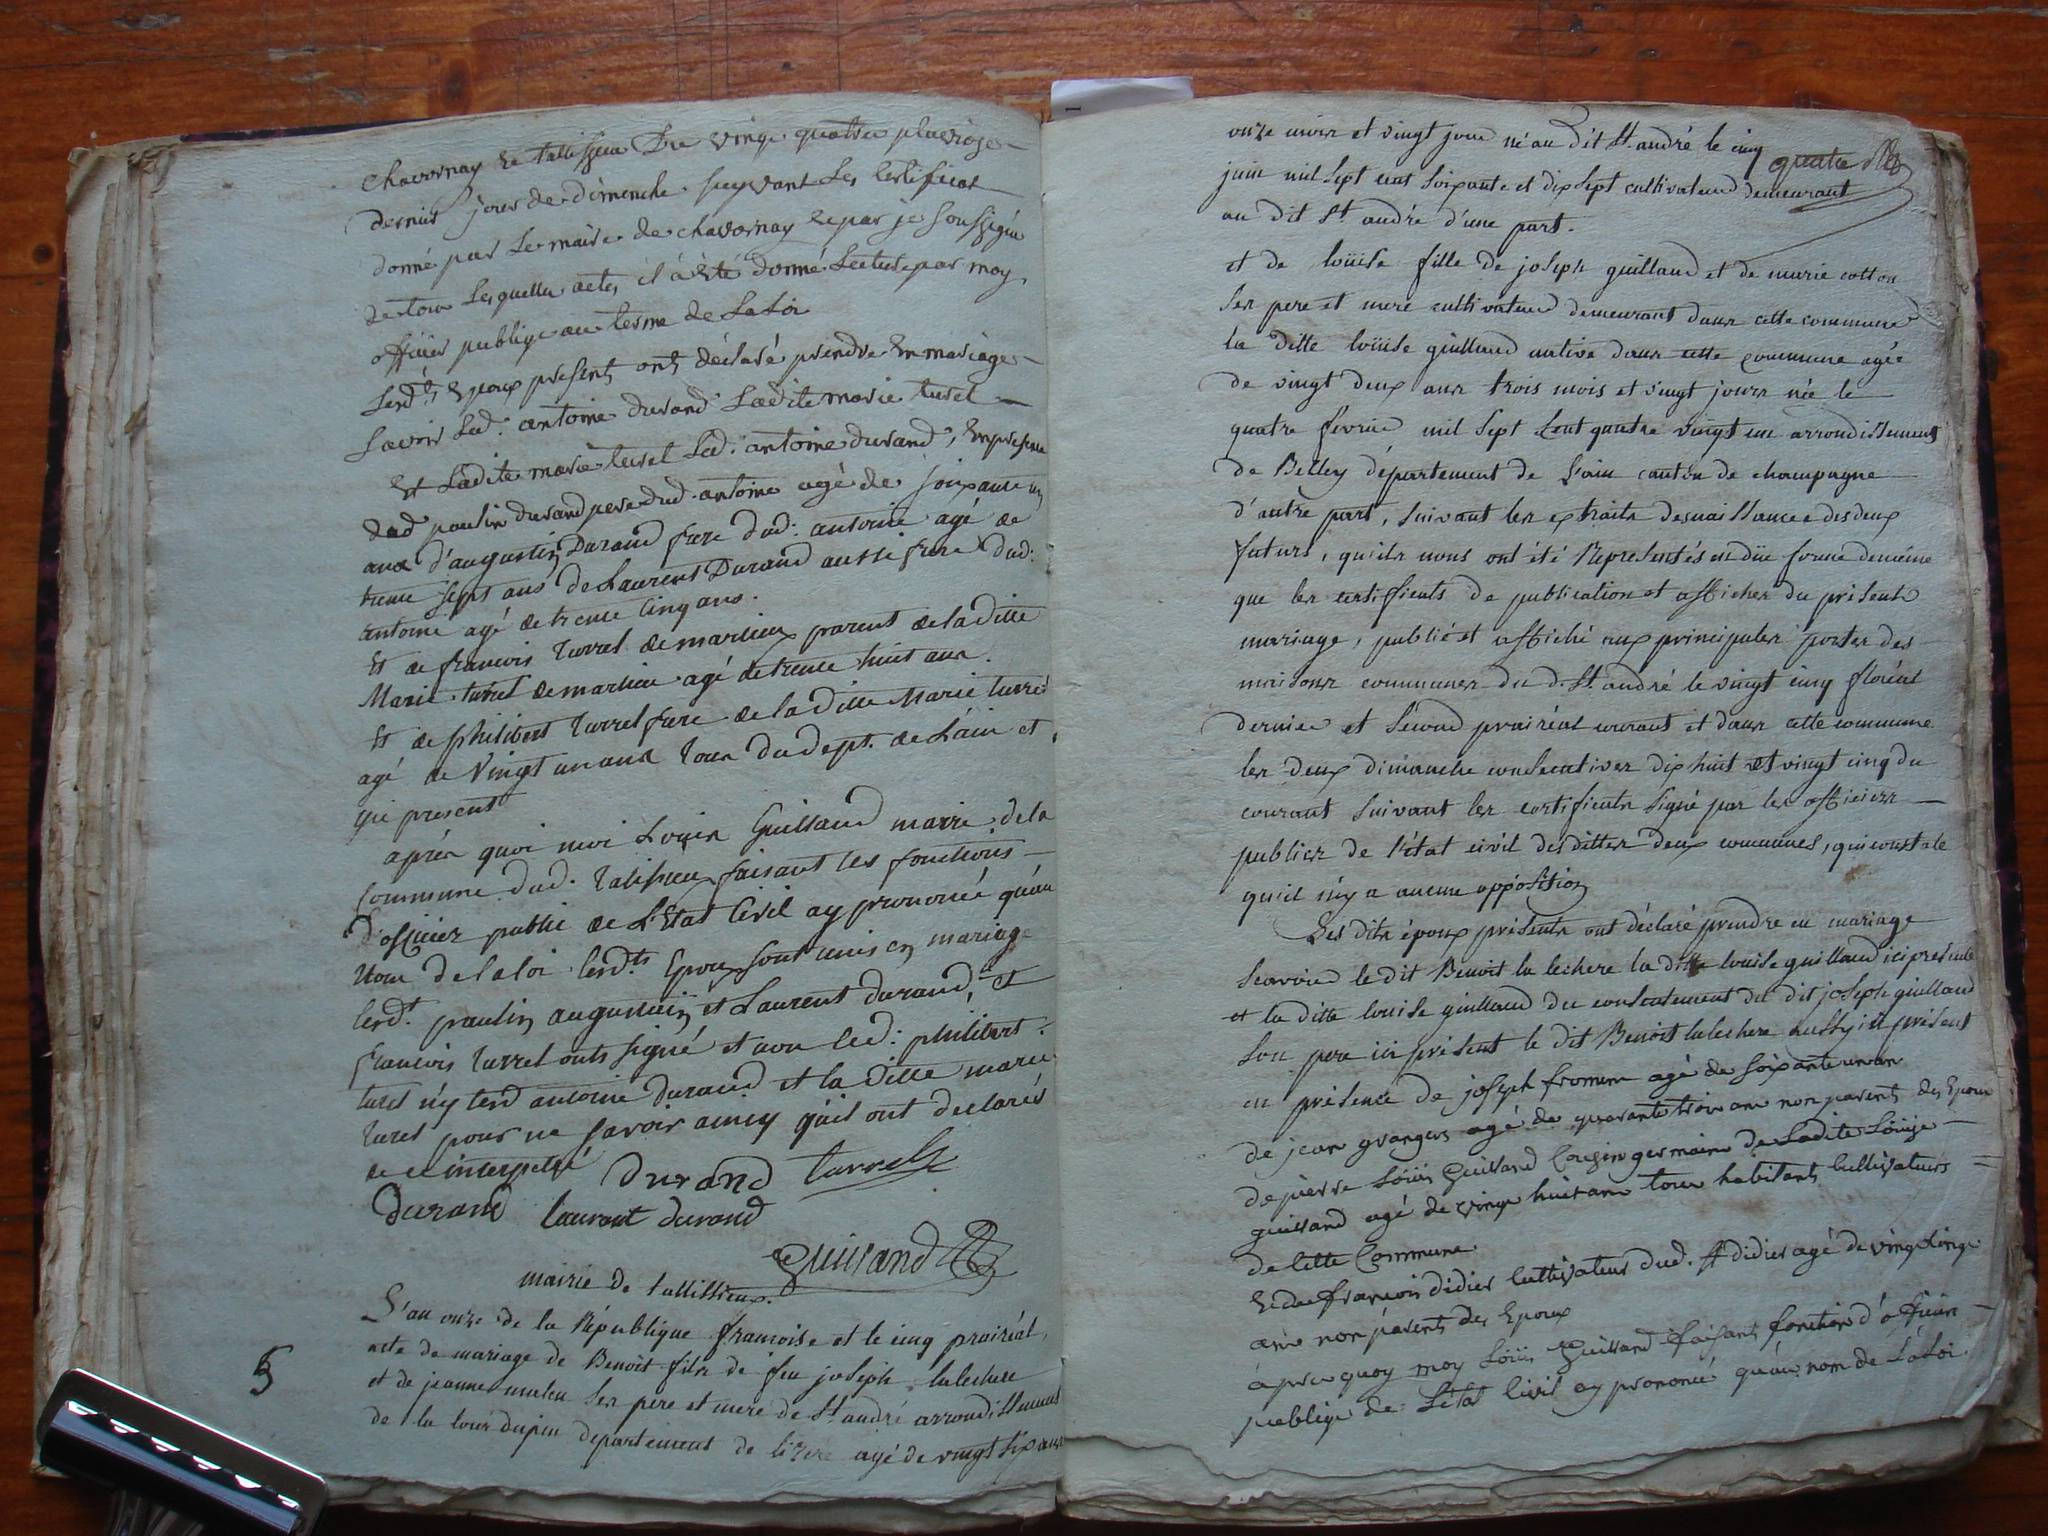 chavornay et tallissieu Du vingt quatre pluviose
dernier jour de dimenche suyvant les certificat
donné par Le maire de chavornay et par je soussigné
de tous Lesquelles actes il à été donné Lecture par moy
officier publique au terme de La Loi
Lesd.ts Epoux present ont déclaré prendre En mariage
Savoir Led. antoine durand Ladite marie turel
Et Ladite marie turel Led. antoine durand, En presence
dud paulin durand pere dud. antoine agé de soixante un
ans d'augustin Durand frere dud: antoine agé de
trente sept ans de Laurent Durand aussi frere dud:
antoine agé de trente cinq ans.
Et de francois Turrel de marlieu parent de la ditte
Marie turel de marlieu agé de trente huit ans.
Et de philibert Turrel frere de la ditte Marie turrel
agé de vingt un ans tous du dept. de L'ain et
qui present
après quoi moi Louis Guilland maire de la
commune dud. Talissieu faisant les fonctions
d'officier public de L'Etat Civil ay prononcé qu'au
nom de la loi lesd.ts Epoux sont unis en mariage
lesd.t paulin augustin et Laurent durand, et
francois Turrel onts signé et non led: philibert
turel n'y led antoine durand et la ditte marie
turel pour ne savoir ainsy qu'il ont declarés
de ce interpellé Durand turrel
Durand laurent durand
Guilland
mairie de tallissieux.
5
L'an onze de la République francoise et le cinq prairéal,
acte de mariage de Benoit fils de feu joseph lalechere
et de jeanne ses pere et mere de St. andré arrondissement
de la tour dupin departement de agé de vingt six ans
onze mois et vingt jour né au dit St. andré le cinq
quatre
juin mil sept cent soixante et dix sept cultivateur demeurant
au dit St. andré d'une part.
et de loüise fille de joseph guilland et de marie cotton
ses pere et mere cultivateur demeurant dans cette commune
la ditte loüise guilland native dans cette commune agée
de vingt deux ans trois mois et vingt jours née le
quatre fevrier mil sept cent quatre vingt un arrondissement
de Belley département de L'ain canton de champagne
d'autre part, suivant les extraits de naissance des deux
futurs, qu'ils nous ont été Representés en düe forme de même
que les certificats de publication et affiches du présent
mariage, publié et affiché aux principales portes des
maisons communes du d. St. andré le vingt cinq floréal
dernier et second prairéal courant et dans cette commune
les deux dimanche consecutives dix huit et vingt cinq du
courant suivant les certificats signé par les officiers
publics de l'état civil des dittes deux communes, qui constate
qu'il n'y a aucune opposition
Les dits époux présents ont déclaré prendre en mariage
scavoir le dit Benoit la lechere la ditte louise guilland ici presente
et la ditte louise guilland du consentement du dit joseph guilland
son pere ici présent le dit Benoit lalechere aussy ici présent
en présence de joseph froment agé de soixante un an
de jean grangers agé de quarante trois ans non parents des Epoux
de pierre Loüis Guilland Cousin germains de Ladite Loüise
guilland agé de vingt huit ans tous habitants Cultivateurs
de Cette Commune
Et de francois didier Cultivateur dud. St didier agé de vingt cinq
ans non parents des Epoux
àpres quoy moy Loüis Guilland faisant fonction d'officier
publique de L'état Civil ay prononcé qu'au nom de La Loi